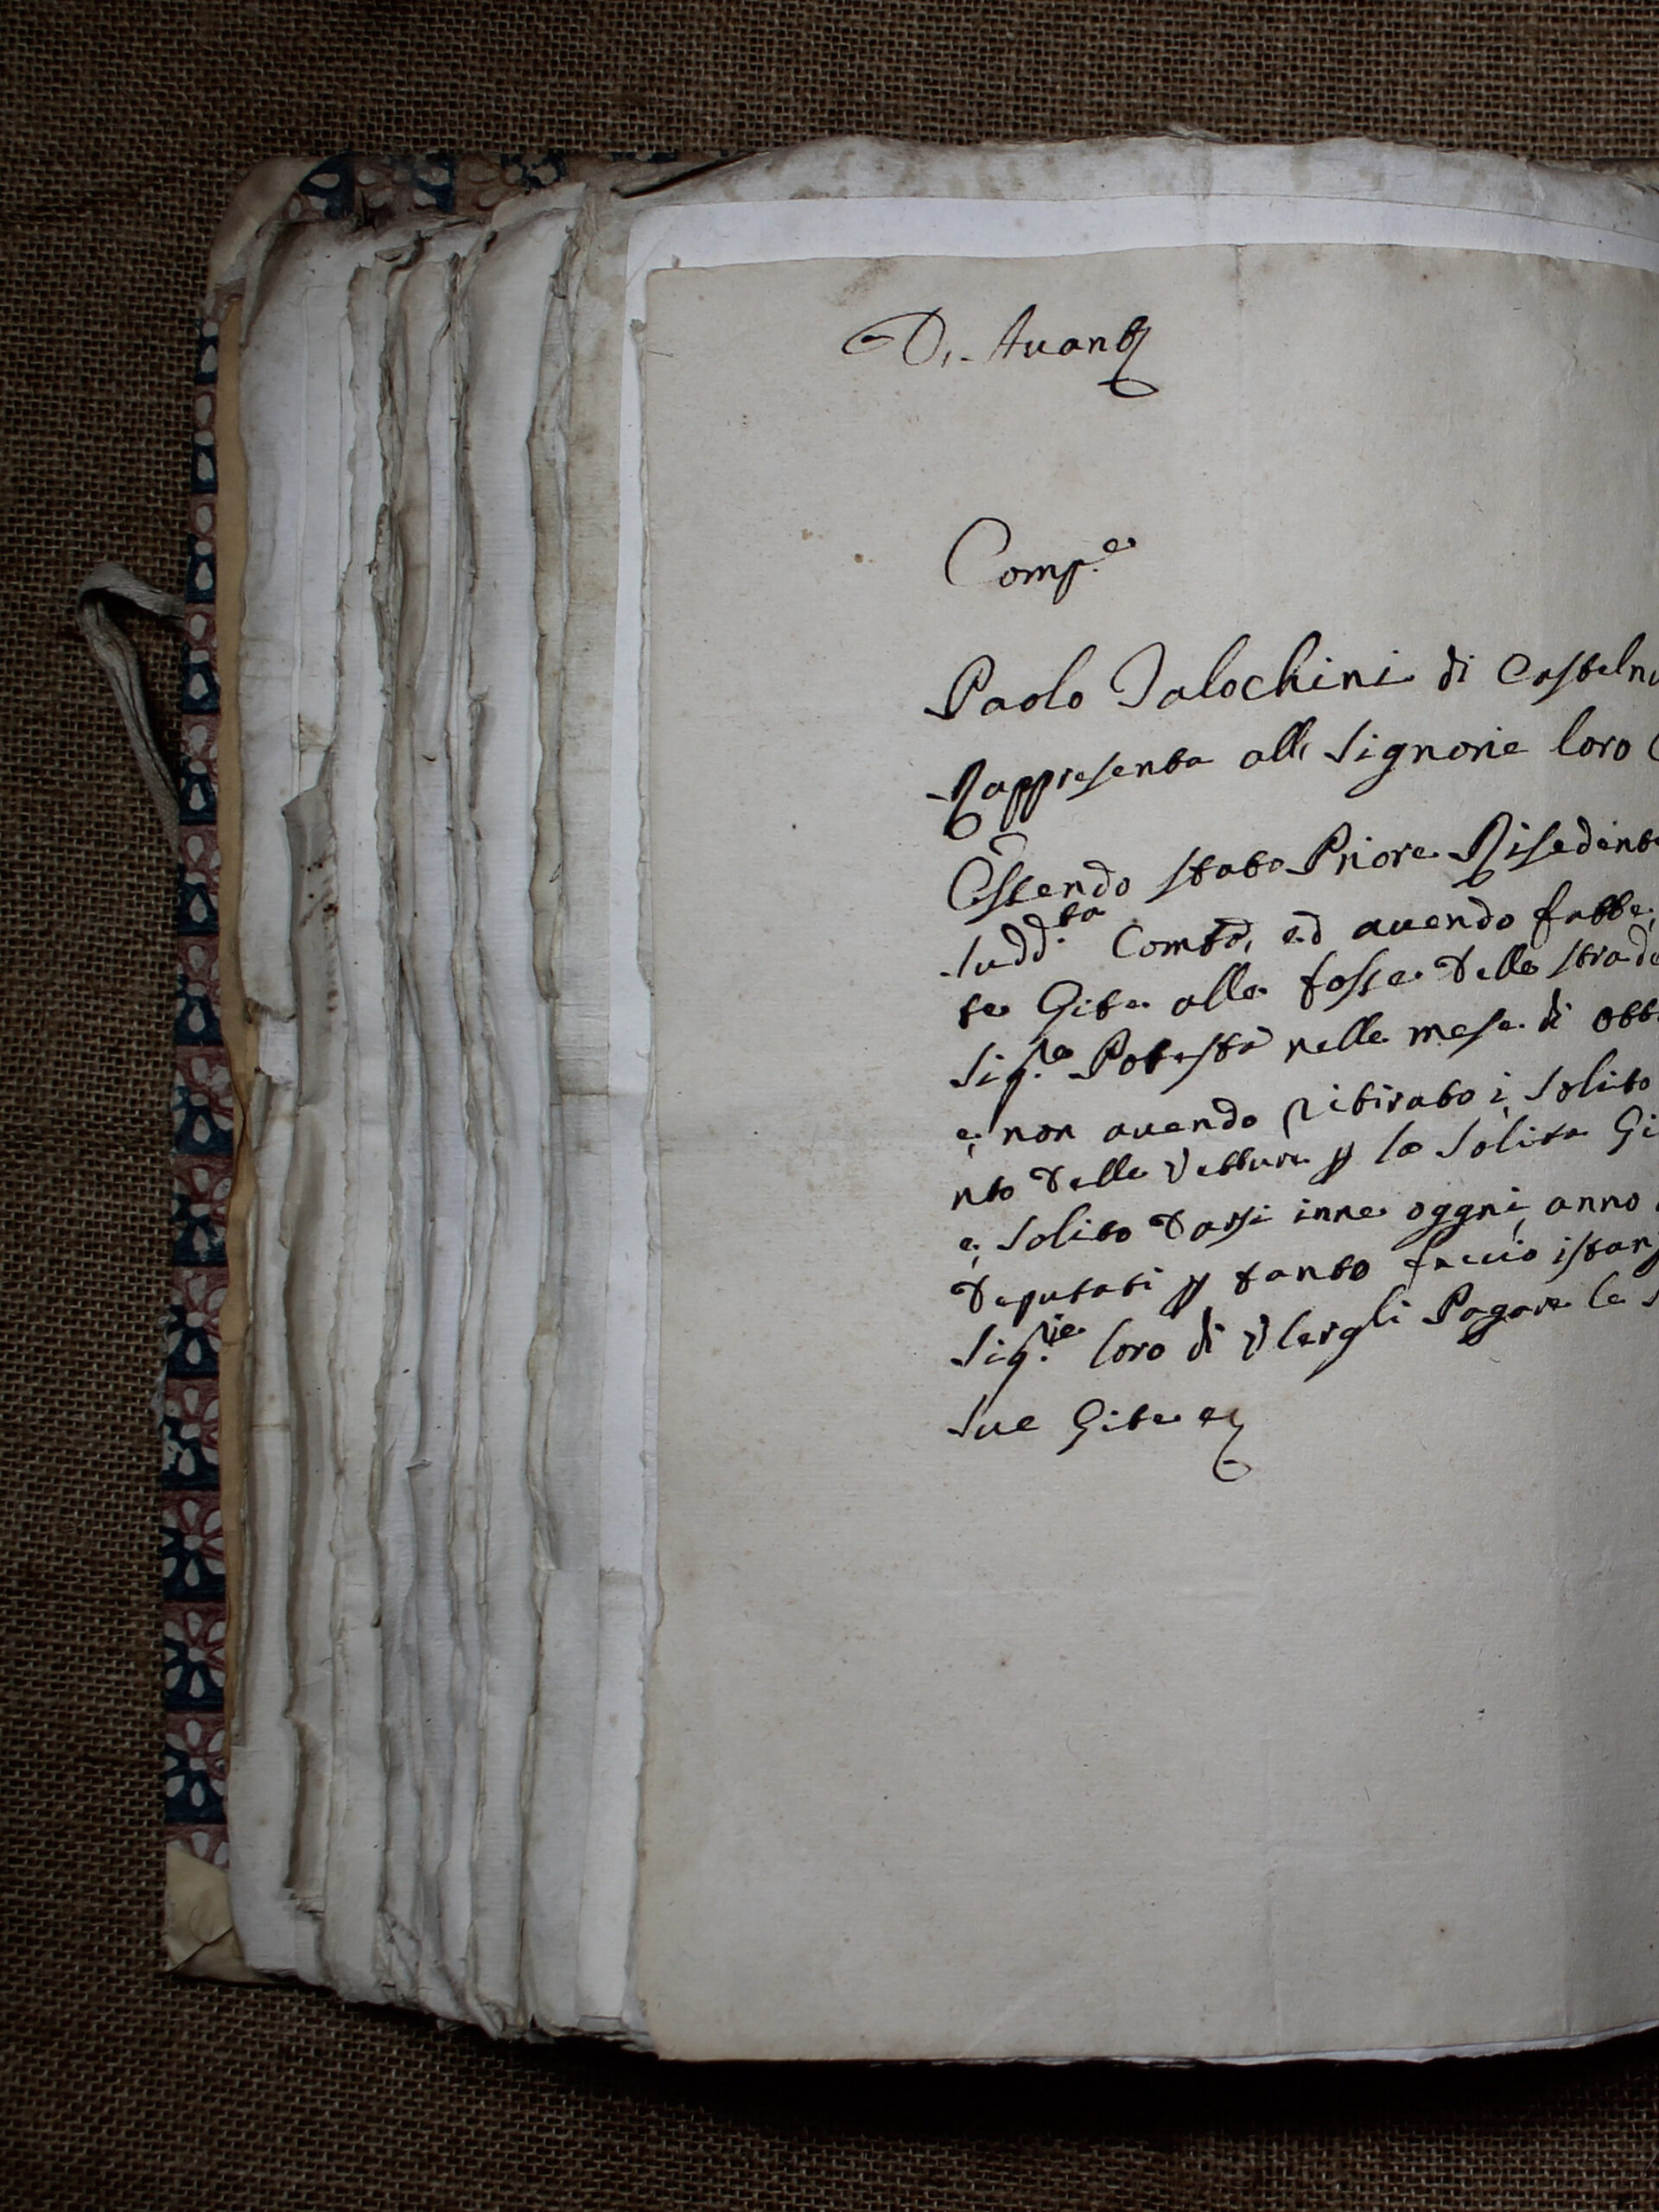 D. Auanti
Comp.e
Paolo Jalochini di Castelnu
Rappresenta alle Signorie loro
Essendo stato Priore Risedente
sudd.ta Comtà, ed auendo fatte
te Gite alle fosse delle strade
Sig.re Potestà nelle mese di otto
e, non auendo ritirato i, solito
nto delle Vetture p la solita Gi
e, solito darsi inne oggni, anno
deputati p tanto faccio istanz
Sig.rie loro di Vlergli Pagare le s
sue Gite